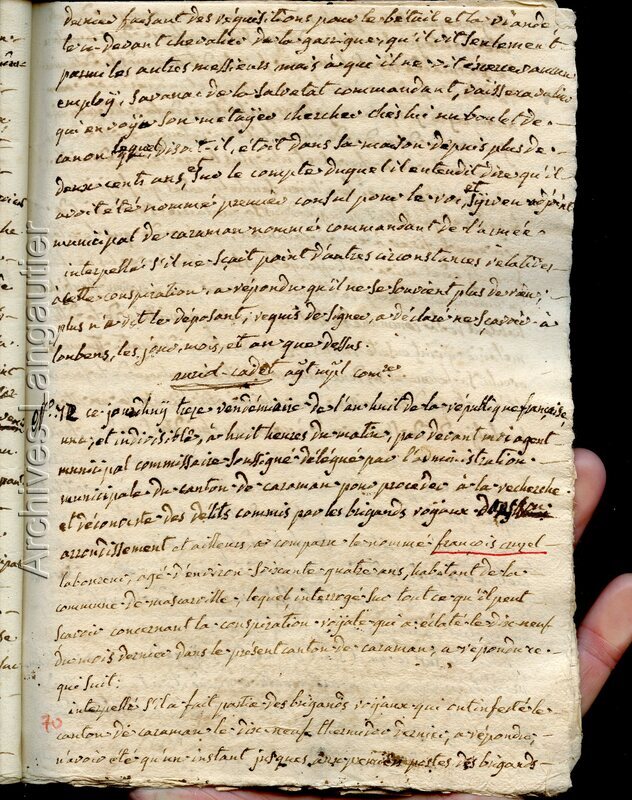 dernier faisant des réquisitions pour le betail et la viande,
le ci devant chevalier de la garrigue, qu'il vit seulement
parmi les autres messieurs mais à que il ne vit exercer aucun
employ, Savanac de la Salvetat commandant,
qui envoya son métayer chercher chès lui un boulet de
canon lequel, disoit-il, etoit dans sa maison depuis plus de
deux cents ans, Sur le compte duquel il entendit dire qu'il
avoit eté nommé premier consul pour le roi, et
municipal de caraman nommé commandant de l'armée
interpellé s'il ne sçait point d'autres circonstances relatives
à cette conspiration, a répondu qu'il ne se souvient plus de rien;
plus n'a dit le déposant, requis de signer, a déclaré ne sçavoir à
loubens, les jour, mois, et an que dessus.
auriol-cadet agt mpl comre
N°. 72 ce jourdhuy treze vendémiaire de l'an huit de la république française,
une, et indivisible, à huit heures du matin, par devant moi agent
municipal commissaire soussigné délégué par l'administration
municipale du canton de caraman pour proceder à la recherche
et découverte des délits commis par les brigands royaux dans
arrondissement et ailleurs, a comparu le nommé francois
laboureur, agé d'environ soixante quatre ans, habitant de la
commune de mascarville, lequel interrogé sur tout ce qu'il peut
sçavoir concernant la conspiration royale qui a éclaté le dix neuf
du mois dernier dans le présent canton de caraman, a répondu ce
qui suit:
interpellé s'il a fait partie des brigands royaux qui ont infesté le
canton de caraman le dix neuf thermidor dernier, a répondu,
n'avoir eté qu'un instant jusques aux premiers postes des brigands
70
Archives-Langautier